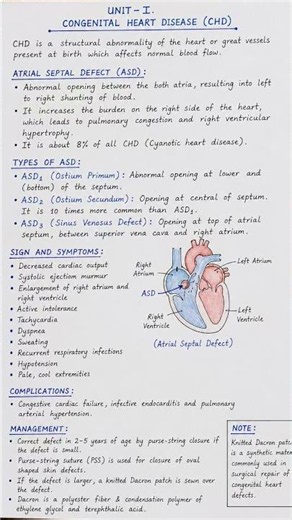 UNIT – I.
CONGENITAL HEART DISEASE (CHD)
CHD is a structural abnormality of the heart or great vessels
present at birth which affects normal blood flow.
ATRIAL SEPTAL DEFECT (ASD):
• Abnormal opening between the both atria, resulting into left
to right shunting of blood.
• It increases the burden on the right side of the heart,
which leads to pulmonary congestion and right ventricular
hypertrophy.
• It is about 8% of all CHD (Cyanotic heart disease).
TYPES OF ASD:
• ASD₁ (Ostium Primum): Abnormal opening at lower and
(bottom) of the septum.
• ASD₂ (Ostium Secundum): Opening at central of septum.
It is 10 times more common than ASD₁.
• ASD₃ (Sinus Venosus Defect): Opening at top of atrial
septum, between superior vena cava and right atrium.
SIGN AND SYMPTOMS:
• Decreased cardiac output
• Systolic ejection murmur
• Enlargement of right atrium and
right ventricle
• Active intolerance
• Tachycardia
• Dyspnea
• Sweating
• Recurrent respiratory infections
• Hypotension
• Pale, cool extremities
Right
Atrium
Left Atrium
ASD
Right
Ventricle
Left
Ventricle
(Atrial Septal Defect)
COMPLICATIONS:
• Congestive cardiac failure, infective endocarditis and pulmonary
arterial hypertension.
MANAGEMENT:
• Correct defect in 2-5 years of age by purse-string closure if
the defect is small.
• Purse-string suture (PSS) is used for closure of oval
shaped skin defects.
• If the defect is larger, a knitted Dacron patch is sewn over
the defect.
• Dacron is a polyester fiber & condensation polymer of
ethylene glycol and terephthalic acid.
NOTE:
Knitted Dacron patch
is a synthetic mater
commonly used in
surgical repair of
congenital heart
defects.